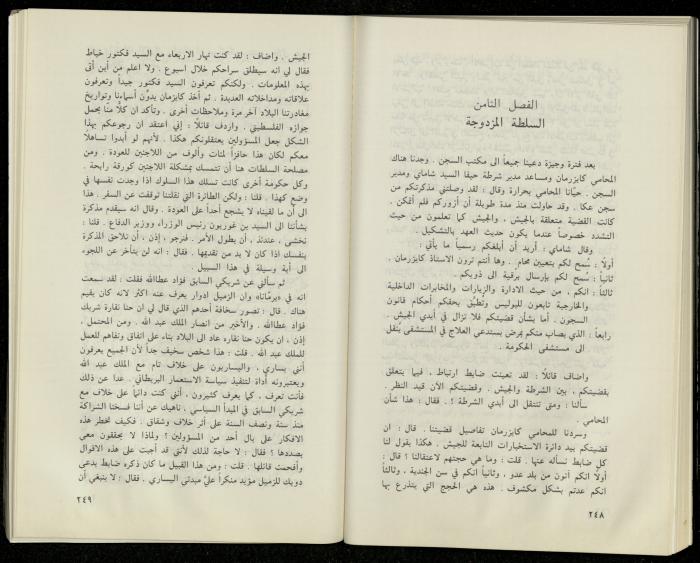 الفصل الثامن
السلطة المزدوجة
بعد فترة وجيزة دعينا جميعاً الى مكتب السجن . وجدنا هناك
المحامي كايزرمان ومساعد مدير شرطة حيفا السيد شاماي ومدير
السجن . حيّانا المحامي بحرارة وقال : لقد وصلتني مذكرتكم من
سجن عكا . وقد حاولت منذ مدة طويلة أن أزوركم فلم أتمكن .
كانت القضية متعلقة بالجيش ، والجيش كما تعلمون من حيث
التشدد خصوصاً عندما يكون حديث العهد بالتشكيل .
وقال شاماي : أريد أن أبلغكم رسمياً ما يأتي :
أولاً : سُمح لكم بتعيين محامٍ . وها أنتم ترون الاستاذ كايزرمان .
ثانياً : سُمح لكم بإرسال برقية الى ذويكم .
ثالثاً : انكم ، من حيث الادارة والزيارات والمخابرات الداخلية
والخارجية تابعون للبوليس وتطبّق بحقكم أحكام قانون
السجون . أما بشأن قضيتكم فلا تزال في أيدي الجيش .
رابعاً : الذي يصاب منكم بمرض يستدعي العلاج في المستشفى يُنقل
الى مستشفى الحكومة .
واضاف قائلاً : لقد تعينت ضابط ارتباط ، فيما يتعلق
بقضيتكم ، بين الشرطة والجيش . وقضيتكم الآن قيد النظر .
سألنا : ومتى تنتقل الى أيدي الشرطة ؟ . فقال : هذا شأن
المحامي .
وسردنا للمحامي كايزرمان تفاصيل قضيتنا . قال : ان
قضيتكم بيد دائرة الاستخبارات التابعة للجيش . هكذا يقول لنا
كل ضابط نسأله عنها . قلت : وما هي حجتهم لاعتقالنا ؟ قال :
أولاً انكم آتون من بلد عدو ، وثانياً انكم في سن الجندية ، وثالثاً
انكم عدتم بشكل مكشوف . هذه هي الحجج التي يتذرع بها
٢٤٨
الجيش . واضاف : لقد كنت نهار الاربعاء مع السيد فكتور خياط
فقال لي انه سيطلق سراحكم خلال اسبوع . ولا اعلم من أين أتى
بهذه المعلومات . ولكنكم تعرفون السيد فكتور جيداً وتعرفون
علاقاته ومداخلاته العديدة . ثم أخذ كايزرمان يدوّن أسماءنا وتواريخ
مغادرتنا البلاد آخر مرة وملاحظات أخرى . وتأكد ان كلاً منّا يحمل
جوازه الفلسطيني . واردف قائلاً : إني اعتقد ان رجوعكم بهذا
الشكل جعل المسؤولين يعتقلونكم هكذا . لأنهم لو أبدوا تساهلاً
معكم لكان هذا حافزاً لمئات وألوف من اللاجئين للعودة . ومن
مصلحة السلطات هنا أن تتمسك بمشكلة اللاجئين كورقة رابحة .
وكل حكومة أخرى كانت تسلك هذا السلوك اذا وجدت نفسها في
وضع كهذا . قلنا : ولكن الطائرة التي نقلتنا توقفت عن السفر . هذا
الى أن ما لقيناه لا يشجع أحداً على العودة . وقال انه سيقدم مذكرة
بشأننا الى السيد بن غوريون رئيس الوزراء ووزير الدفاع . قلنا :
نخشى ، عندئذ ، أن يطول الأمر . فنرجو ، إذن ، أن تلاحق المذكرة
بنفسك اذا كان لا بد من تقديمها . فقال : انه لن يتأخر عن اللجوء
الى أية وسيلة في هذا السبيل .
ثم سألني عن شريكي السابق فؤاد عطاالله فقلت : لقد سمعت
انه في «برمّانا» وان الزميل ادوار يعرف عنه اكثر لانه كان يقيم
هناك . قال : تصور سخافة أحدهم الذي قال لي ان حنا نقارة شريك
فؤاد عطاالله . والأخير من انصار الملك عبد الله . ومن المحتمل ،
إذن ، ان يكون حنا نقارة عاد الى البلاد بناء على اتفاق وتفاهم للعمل
للملك عبد الله . قلت : هذا شخص سخيف جداً لأن الجميع يعرفون
أنني يساري ، واليساريون على خلاف تام مع الملك عبد الله
ويعتبرونه أداة لتنفيذ سياسة الاستعمار البريطاني . عدا عن ذلك
فأنت تعرف ، كما يعرف كثيرون ، أنني كنت دائماً على خلاف مع
شريكي السابق في المبدأ السياسي ، ناهيك عن أننا فسخنا الشراكة
منذ ستة ونصف السنة على أثر خلاف وشقاق . فكيف تخطر هذه
الافكار على بال أحد من المسؤولين ؟ ولماذا لا يحققون معي
بصددها ؟ فقال : لا حاجة لذلك لأنني قد أجبت على هذه الاقوال
وأفحمت قائلها . قلت : ومن هذا القبيل ما كان ذكره ضابط يدعى
دوبك للزميل مؤبد منكراً عليّ مبدئي اليساري . فقال : لا ينبغي أن
٢٤٩